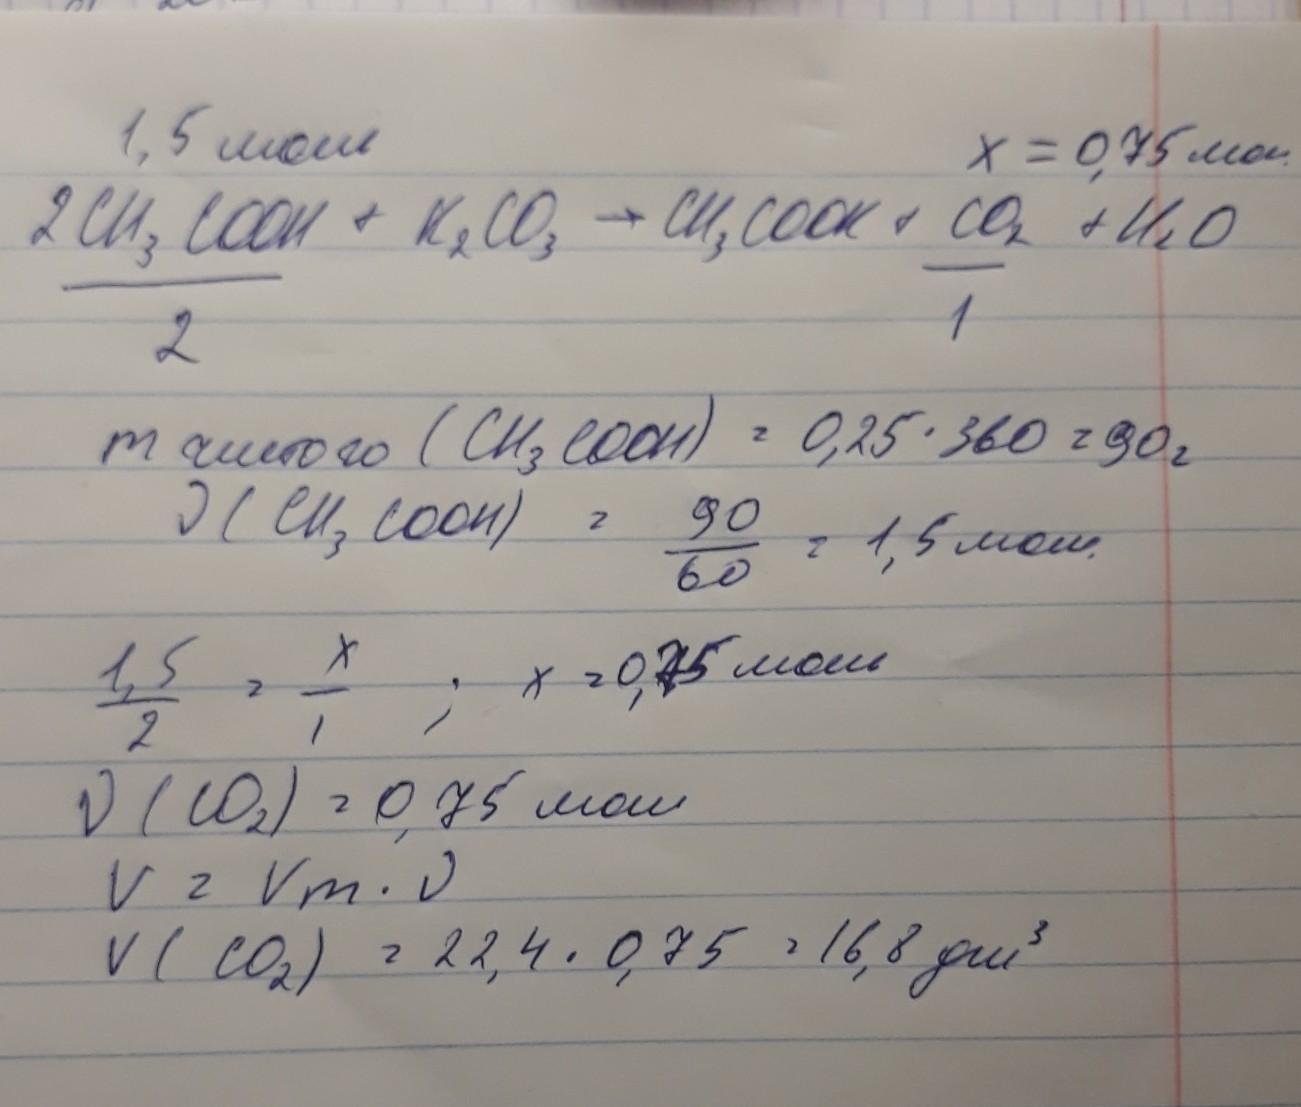 1,5 моль x = 0,75 мол.
2CH₃COOH + K₂CO₃ → CH₃COOK + CO₂ + H₂O
2 1
m чистого (CH₃COOH) = 0,25 · 360 = 90г
ν (CH₃COOH) = 90/60 = 1,5 мол.
1,5/2 = x/1 ; x = 0,75 моль
ν (CO₂) = 0,75 моль
V = Vm · ν
V (CO₂) = 22,4 · 0,75 = 16,8 дм³